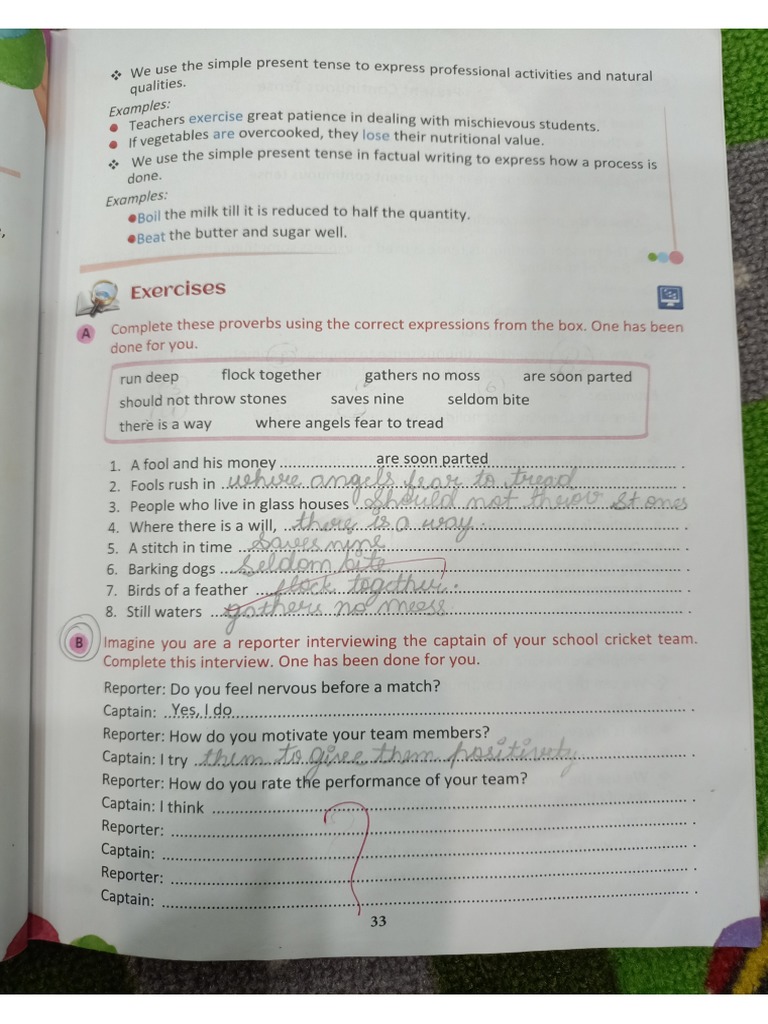 ❖ We use the simple present tense to express professional activities and natural
qualities.
Examples:
● Teachers exercise great patience in dealing with mischievous students.
● If vegetables are overcooked, they lose their nutritional value.
❖ We use the simple present tense in factual writing to express how a process is
done.
Examples:
● Boil the milk till it is reduced to half the quantity.
● Beat the butter and sugar well.
Exercises
A Complete these proverbs using the correct expressions from the box. One has been
done for you.
run deep flock together gathers no moss are soon parted
should not throw stones saves nine seldom bite
there is a way where angels fear to tread
1. A fool and his money are soon parted.
2. Fools rush in where angels fear to tread.
3. People who live in glass houses should not throw stones
4. Where there is a will, there is a way.
5. A stitch in time saves nine.
6. Barking dogs seldom bite.
7. Birds of a feather flock together.
8. Still waters gathers no mess.
B Imagine you are a reporter interviewing the captain of your school cricket team.
Complete this interview. One has been done for you.
Reporter: Do you feel nervous before a match?
Captain: Yes, I do.
Reporter: How do you motivate your team members?
Captain: I try them to give them positivety.
Reporter: How do you rate the performance of your team?
Captain: I think
Reporter:
Captain:
Reporter:
Captain:
33